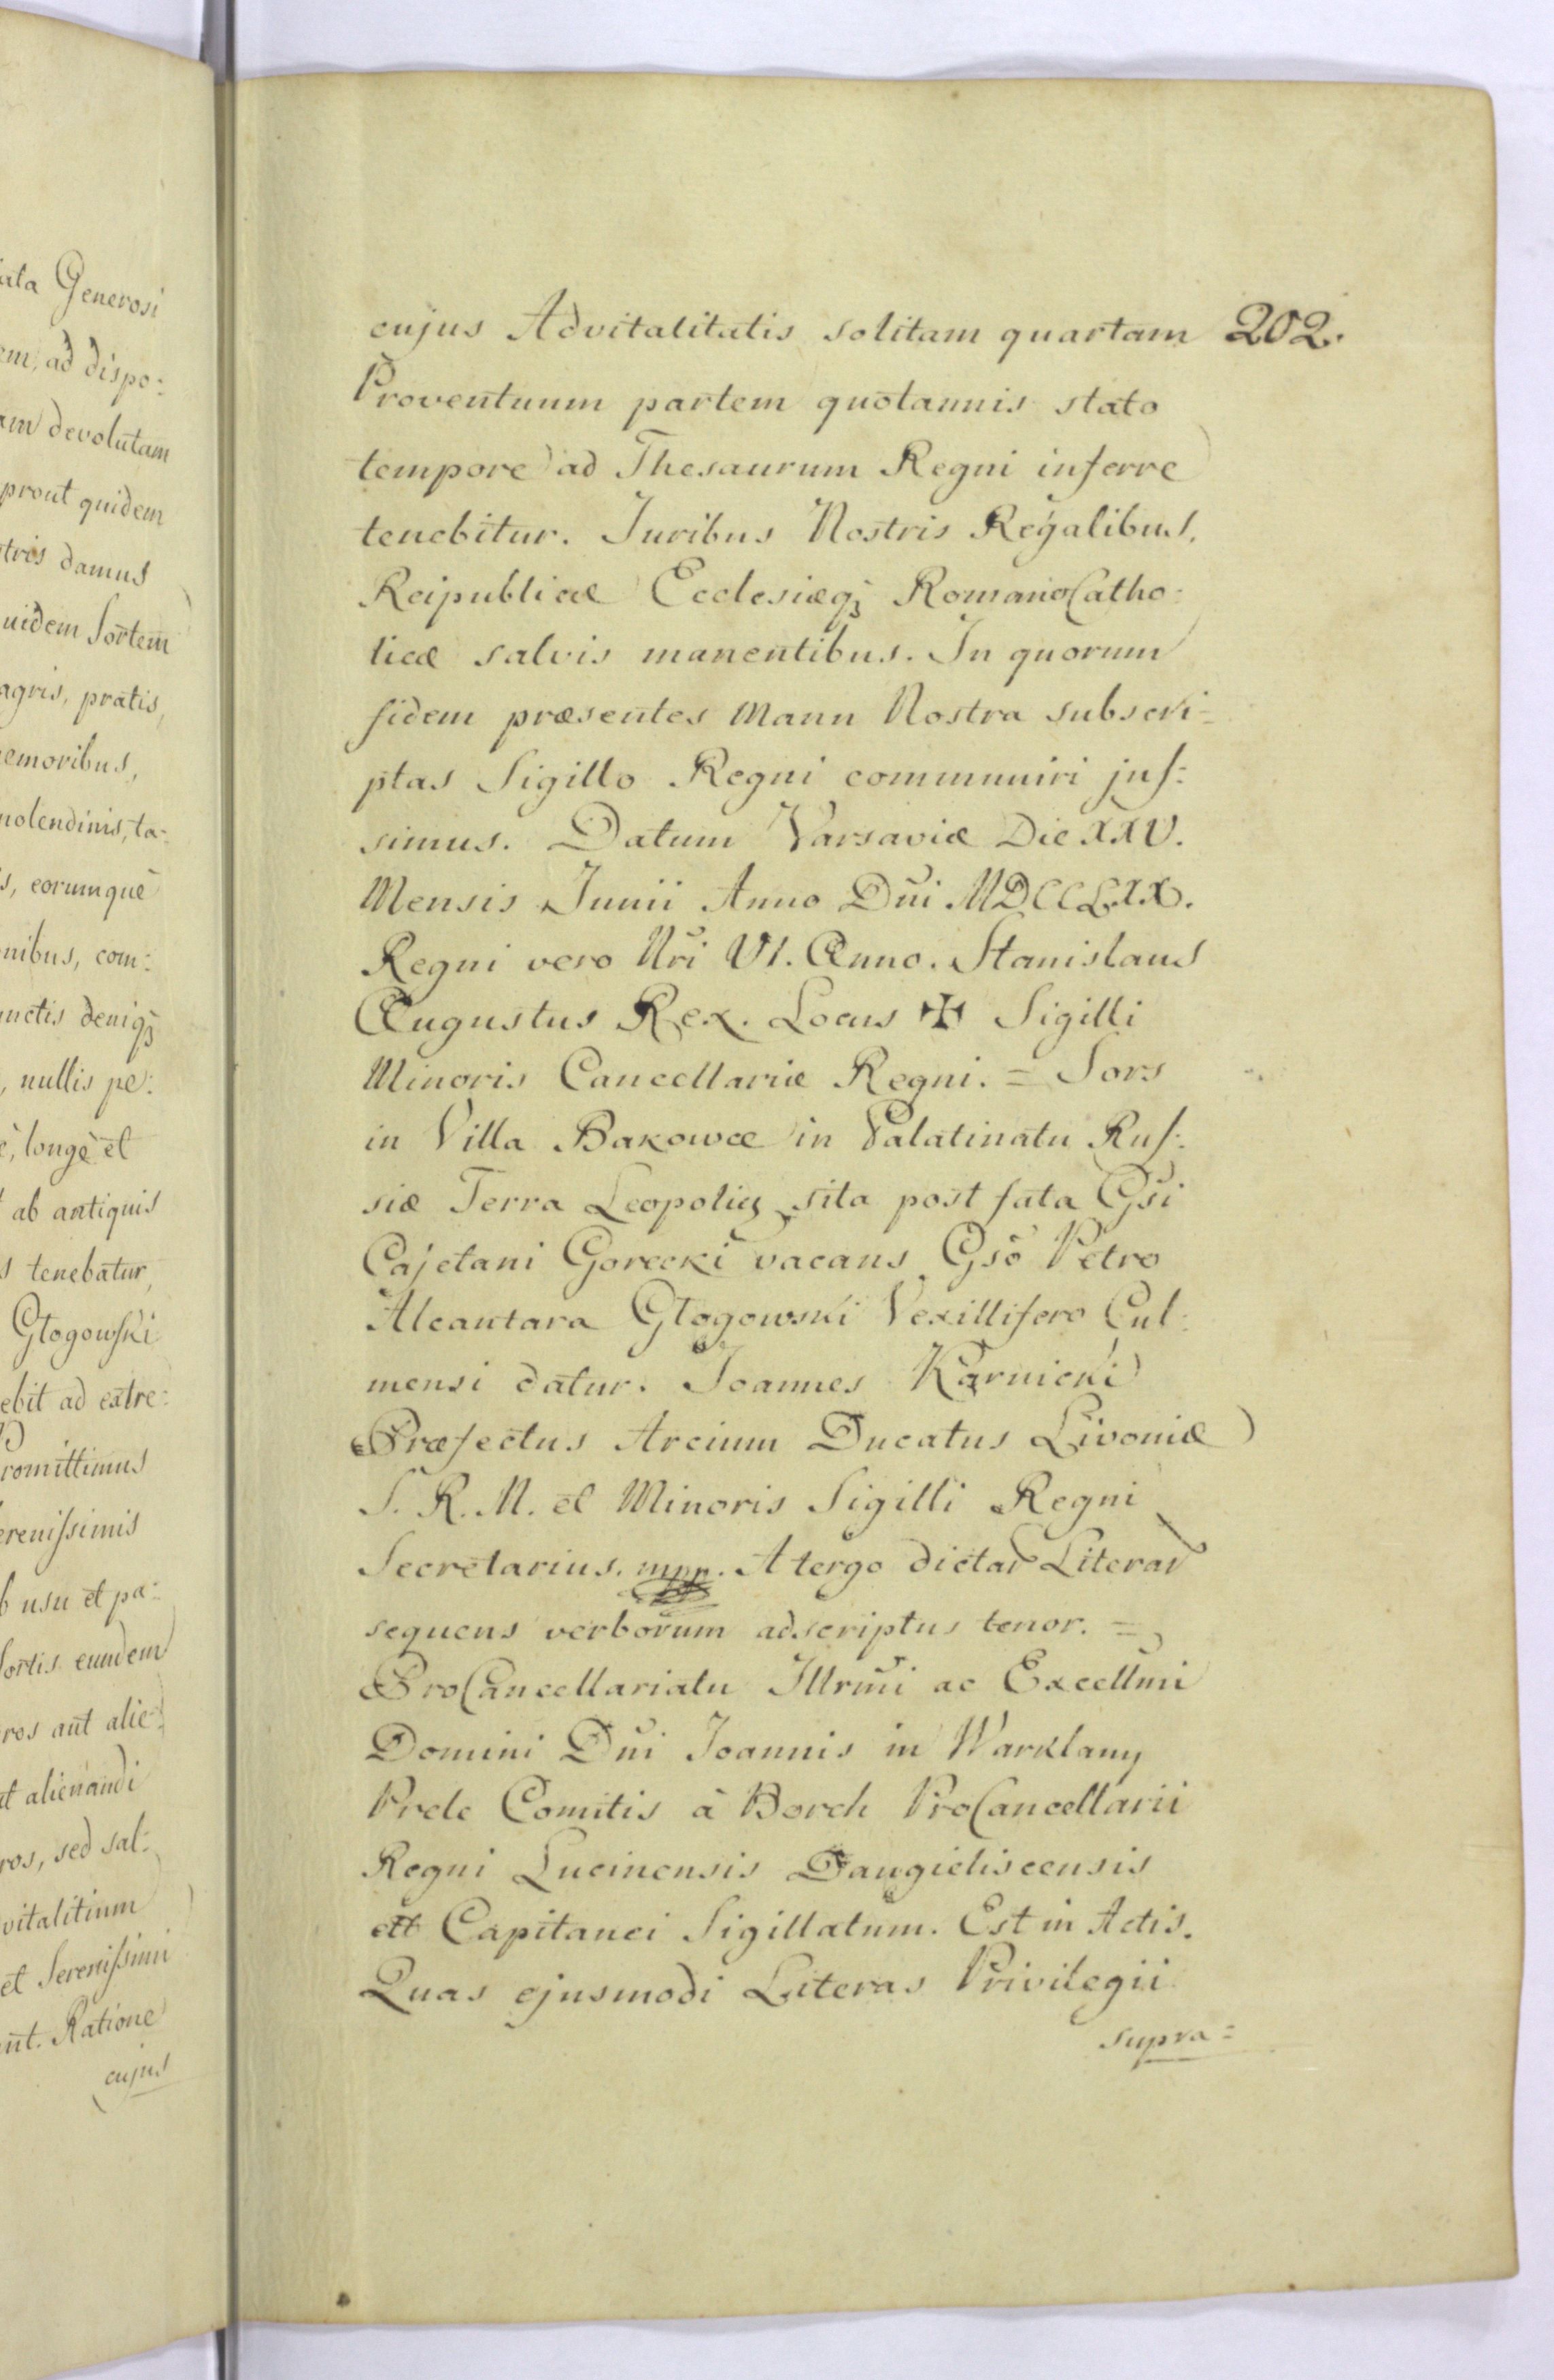 ata Generosi
em, ad dispo:
am devolutam
prout quidem
tris damus
uidem Sortem
agris, pratis,
emoribus,
nolendinis, ta:
s, eorumquè
nibus, com:
unctis deniqꝫ
, nullis pe:
è, longè et
ab antiquis
s tenebatur,
Głogowſki
ebit ad extre:
romittimus
ereniſsimis
b usu et pa:
Sortis eundem
ros aut alie:
ut alienandi
ros, sed sal:
vitalitium
et Sereniſsimi
unt. Ratione
cujus
202.
cujus Advitalitatis solitam quartam
Proventuum partem quotannis stato
tempore ad Thesaurum Regni inferre
tenebitur. Juribus Nostris Regalibus,
Reipublicæ Ecclesiæqꝫ RomanoCatho:
licæ salvis manentibus. In quorum
fidem præsentes Manu Nostra subscri=
ptas Sigillo Regni communiri juſ:
simus. Datum Varsaviæ Die XXV.
Mensis Junii Anno Dni MDCCLXX.
Regni vero Nri VI. Anno. Stanislaus
Augustus Rex. Locus ✠ Sigilli
Minoris Cancellariæ Regni. = Sors
in Villa Bakowce in Palatinatu Ruſ:
siæ Terra Leopolien sita post fata Gsi
Cajetani Gorecki vacans Gsõ Petro
Alcantara Głogowski Vexillifero Cul:
mensi datur. Joannes Karnicki
Præfectus Arcium Ducatus Livoniæ
S. R. M. et Minoris Sigilli Regni
Secretarius. mpp. A tergo dictar Literar
sequens verborum adscriptus tenor. =
ProCancellariatu Illrmi ac Excellmi
Domini Dni Joannis in Warklany
Prele Comitis à Borch ProCancellarii
Regni Lucinensis Daugieliscensis
ett Capitanei Sigillatum. Est in Actis.
Quas ejusmodi Literas Privilegii
supra=